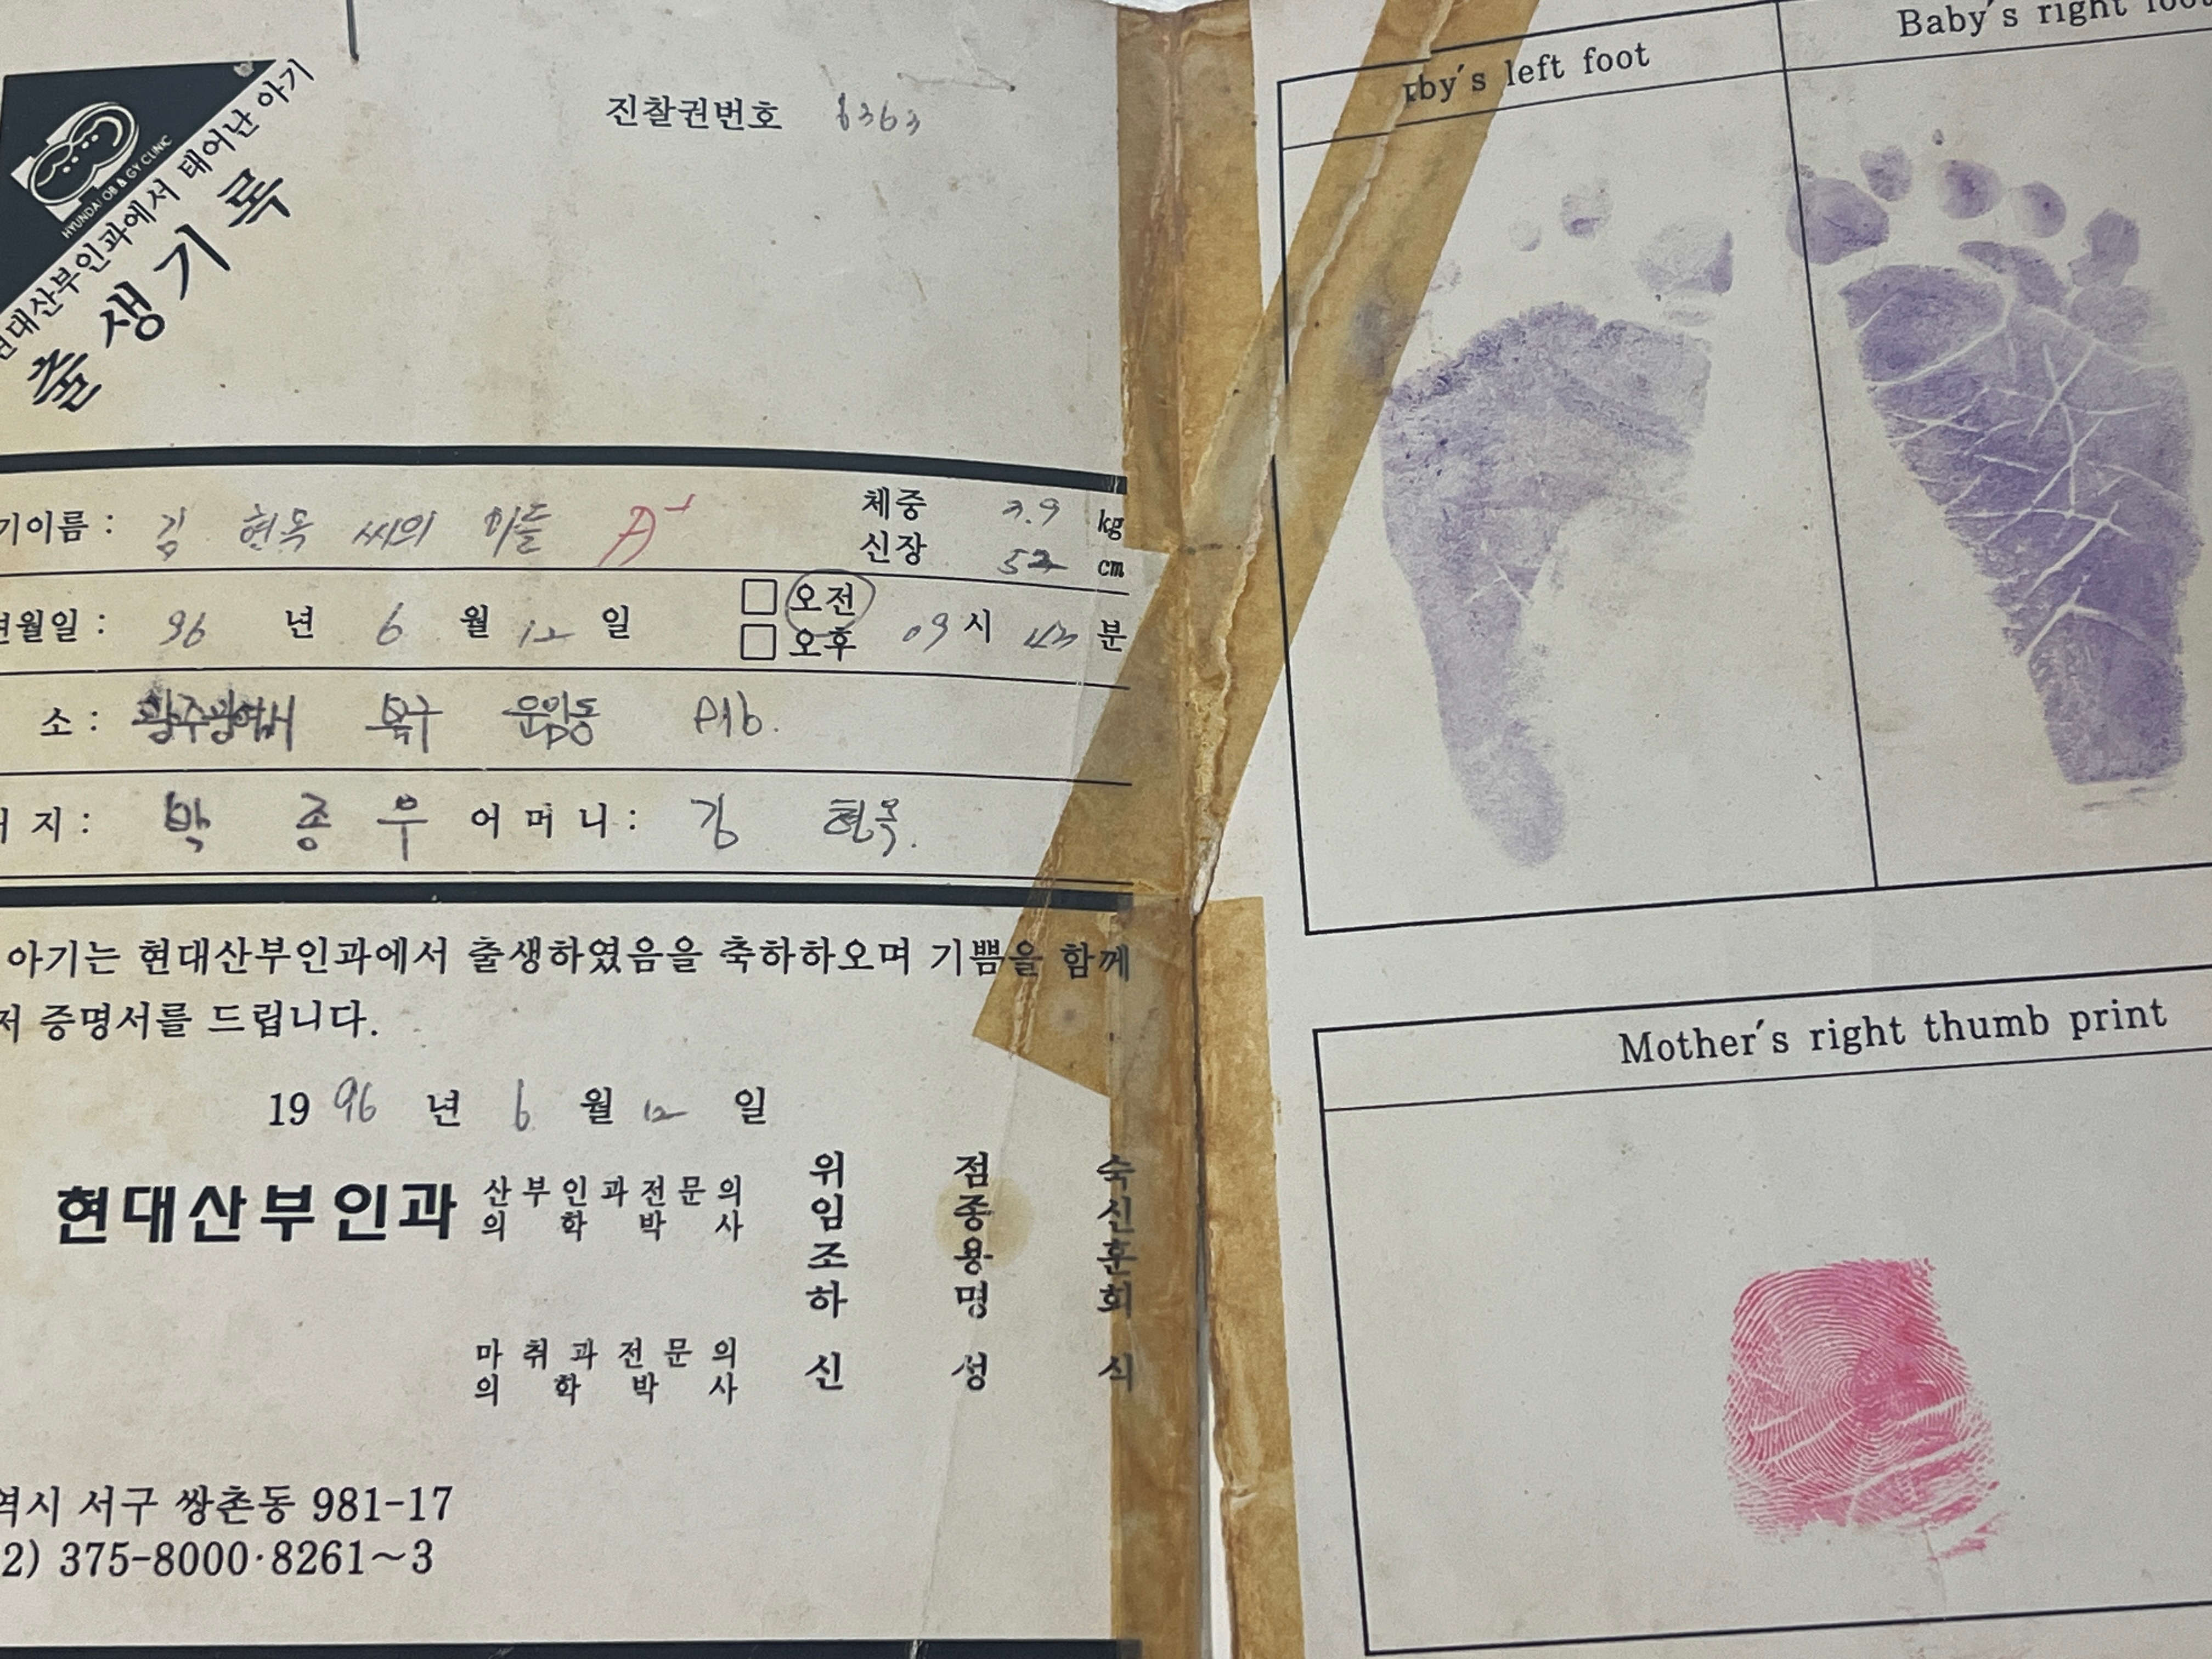 HYUNDAI OB & GY CLINIC
현대산부인과에서 태어난 아기
출생기록
진찰권번호 6363
기이름 : 김 현옥 씨의 아들 A+
체중 3.9 kg
신장 52 cm
년월일 : 96 년 6 월 12 일 오전 오후 09 시 43 분
소 : 광주광역시 북구 운암동
버지 : 박 종 우 어머니 : 김 현옥.
아기는 현대산부인과에서 출생하였음을 축하하오며 기쁨을 함께
저 증명서를 드립니다.
19 96 년 6 월 12 일
현대산부인과 산부인과전문의 의학박사
위점숙
임종신
조용훈
하명회
마취과전문의 의학박사 신성식
역시 서구 쌍촌동 981-17
2) 375-8000·8261~3
by's left foot
Baby's right foot
Mother's right thumb print